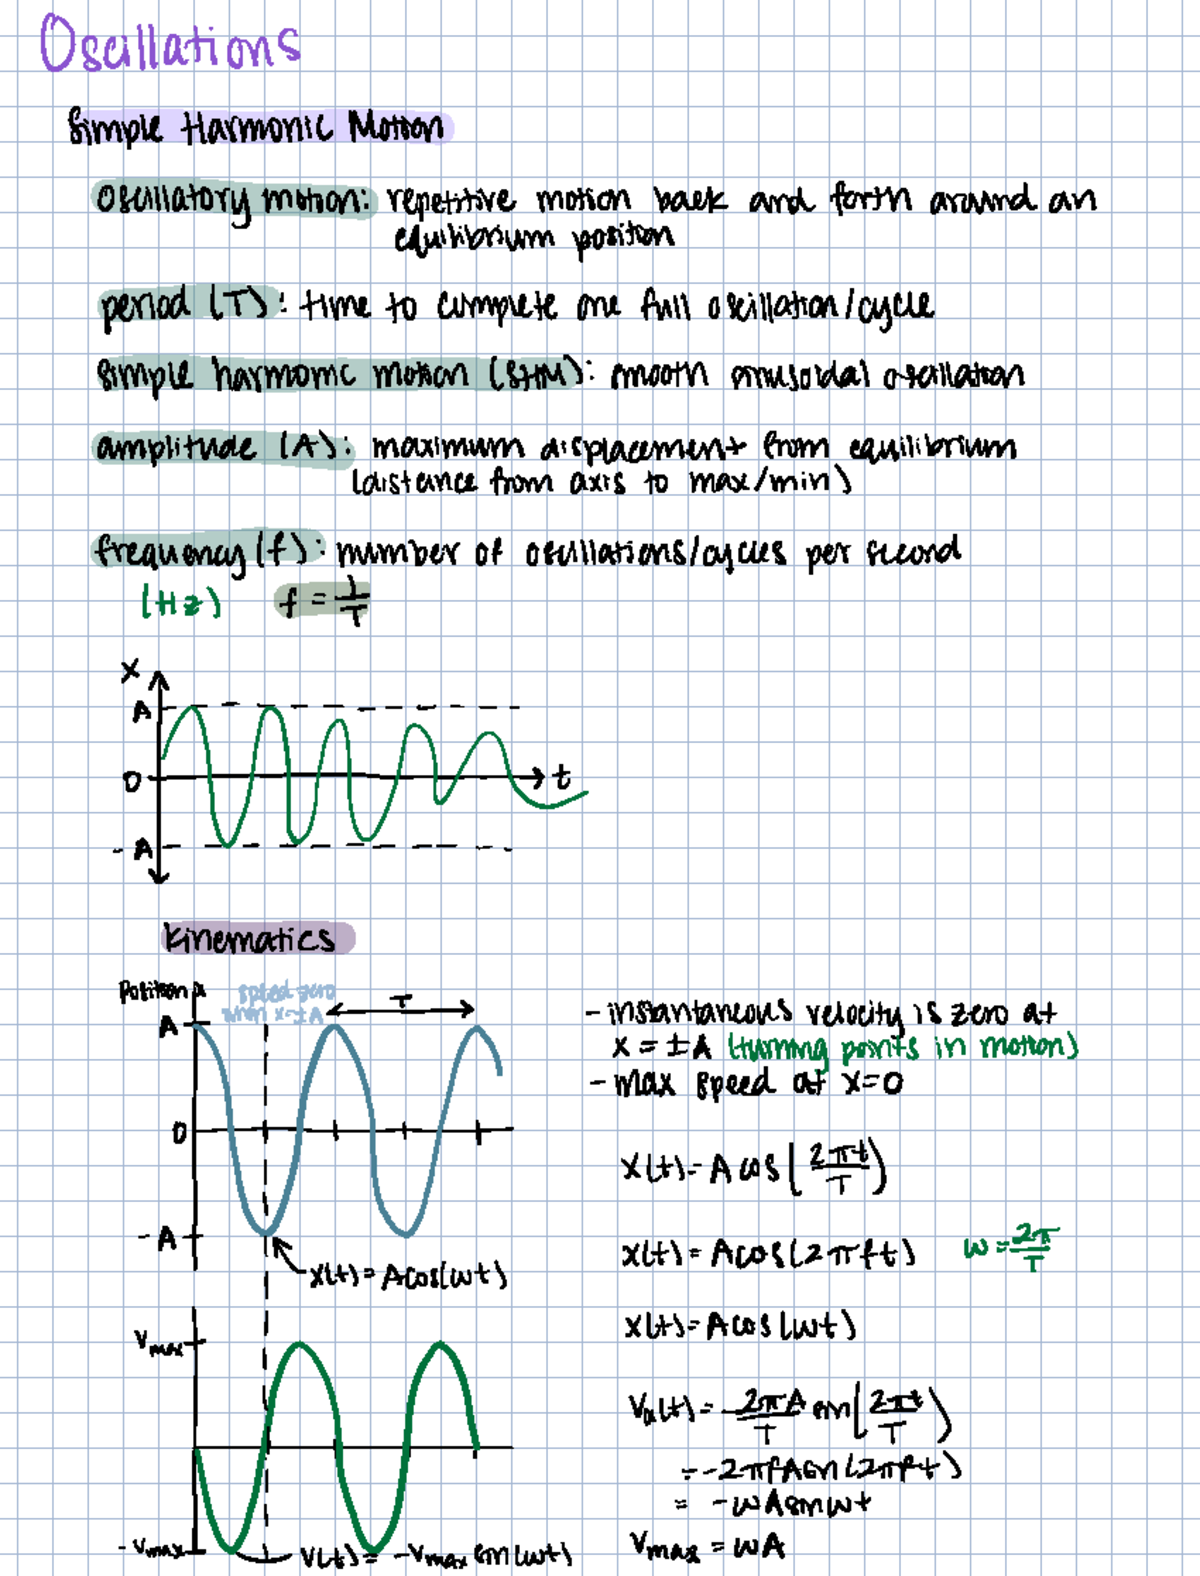 Oscillations
Simple Harmonic Motion
oscillatory motion: repetitive motion back and forth around an
equilibrium position
period (T): time to complete one full oscillation/cycle
simple harmonic motion (SHM): smooth sinusoidal oscillation
amplitude (A): maximum displacement from equilibrium
(distance from axis to max/min)
frequency (f): number of oscillations/cycles per second
(Hz) f = 1/T
x
A
0
t
-A
Kinematics
Position x
speed zero
when x=±A
T
A
0
-A
x(t) = Acos(ωt)
Vmax
-Vmax
V(t) = -Vmax sin(ωt)
- instantaneous velocity is zero at
x = ±A (turning points in motion)
- max speed at x=0
x(t) = A cos(2πt/T)
x(t) = Acos(2πft) ω = 2π/T
x(t) = Acos(ωt)
Vx(t) = -2πA/T sin(2πt/T)
= -2πfAsin(2πft)
= -ωAsinωt
Vmax = ωA